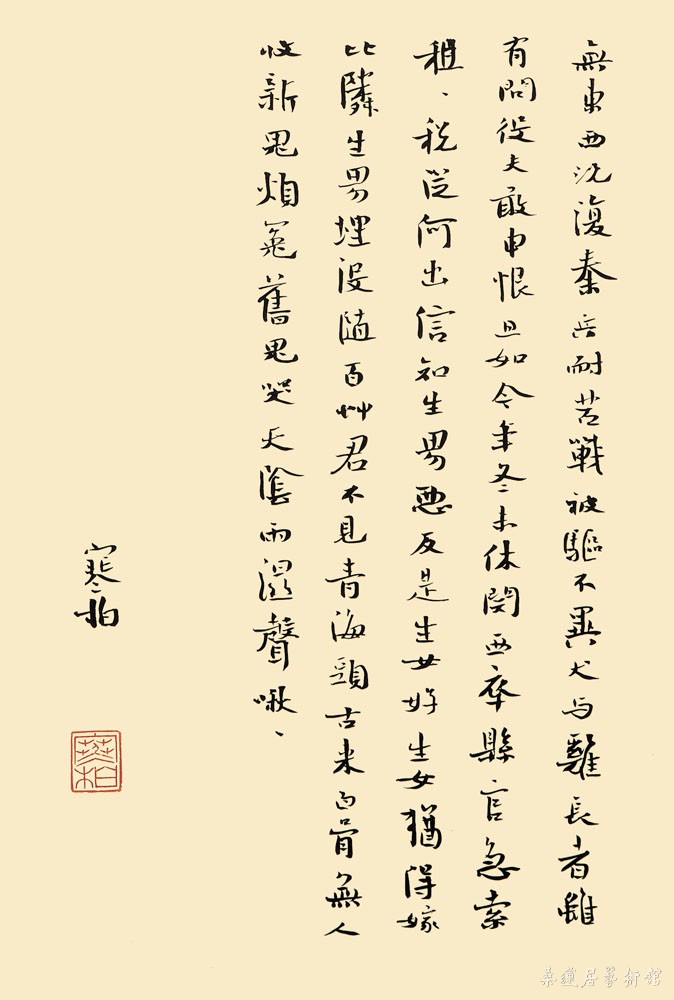 無東西況復秦兵耐苦戰被驅不異犬与雞長者雖
有問役夫敢申恨且如今年冬未休関西卒縣官急索
租、税從何出信知生男惡反是生女好生女猶得嫁
比隣生男埋沒随百艸君不見青海頭古来白骨無人
收新鬼煩冤舊鬼哭天陰雨濕聲啾、
寒柏
寒柏
菜蓮居藝術館